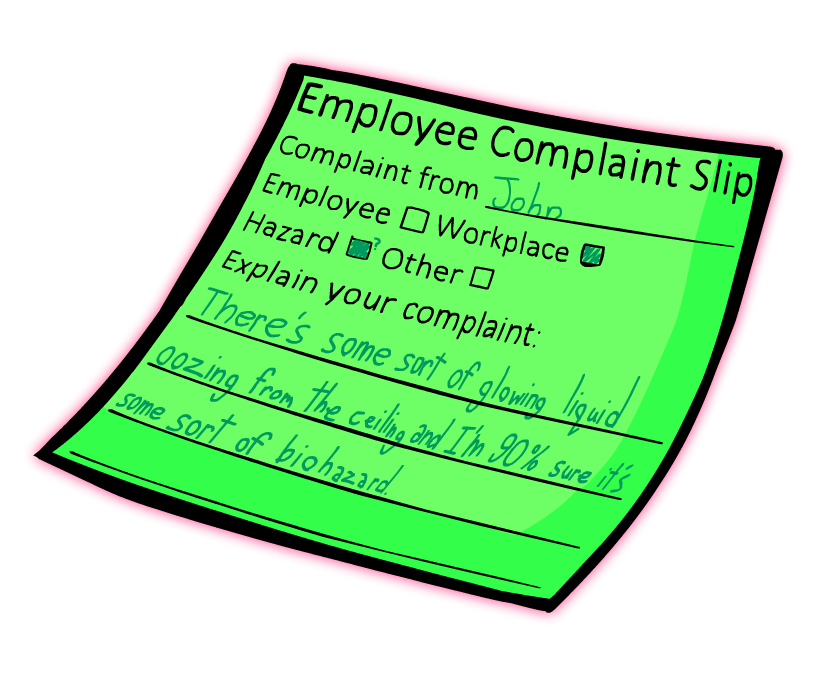 Employee Complaint Slip
Complaint from John
Employee Workplace
Hazard ? Other
Explain your complaint:
There's some sort of glowing liquid
oozing from the ceiling and I'm 90% sure it's
some sort of biohazard!